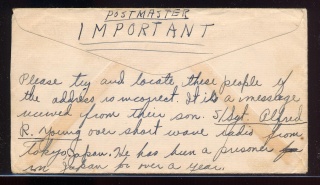 POSTMASTER
IMPORTANT
Please try and locate these people if
the address is incorrect. It is a message
received from their son. S/Sgt. Alfred
R. Young over short wave radio from
Tokyo Japan. He has been a prisoner
in Japan for over a year.